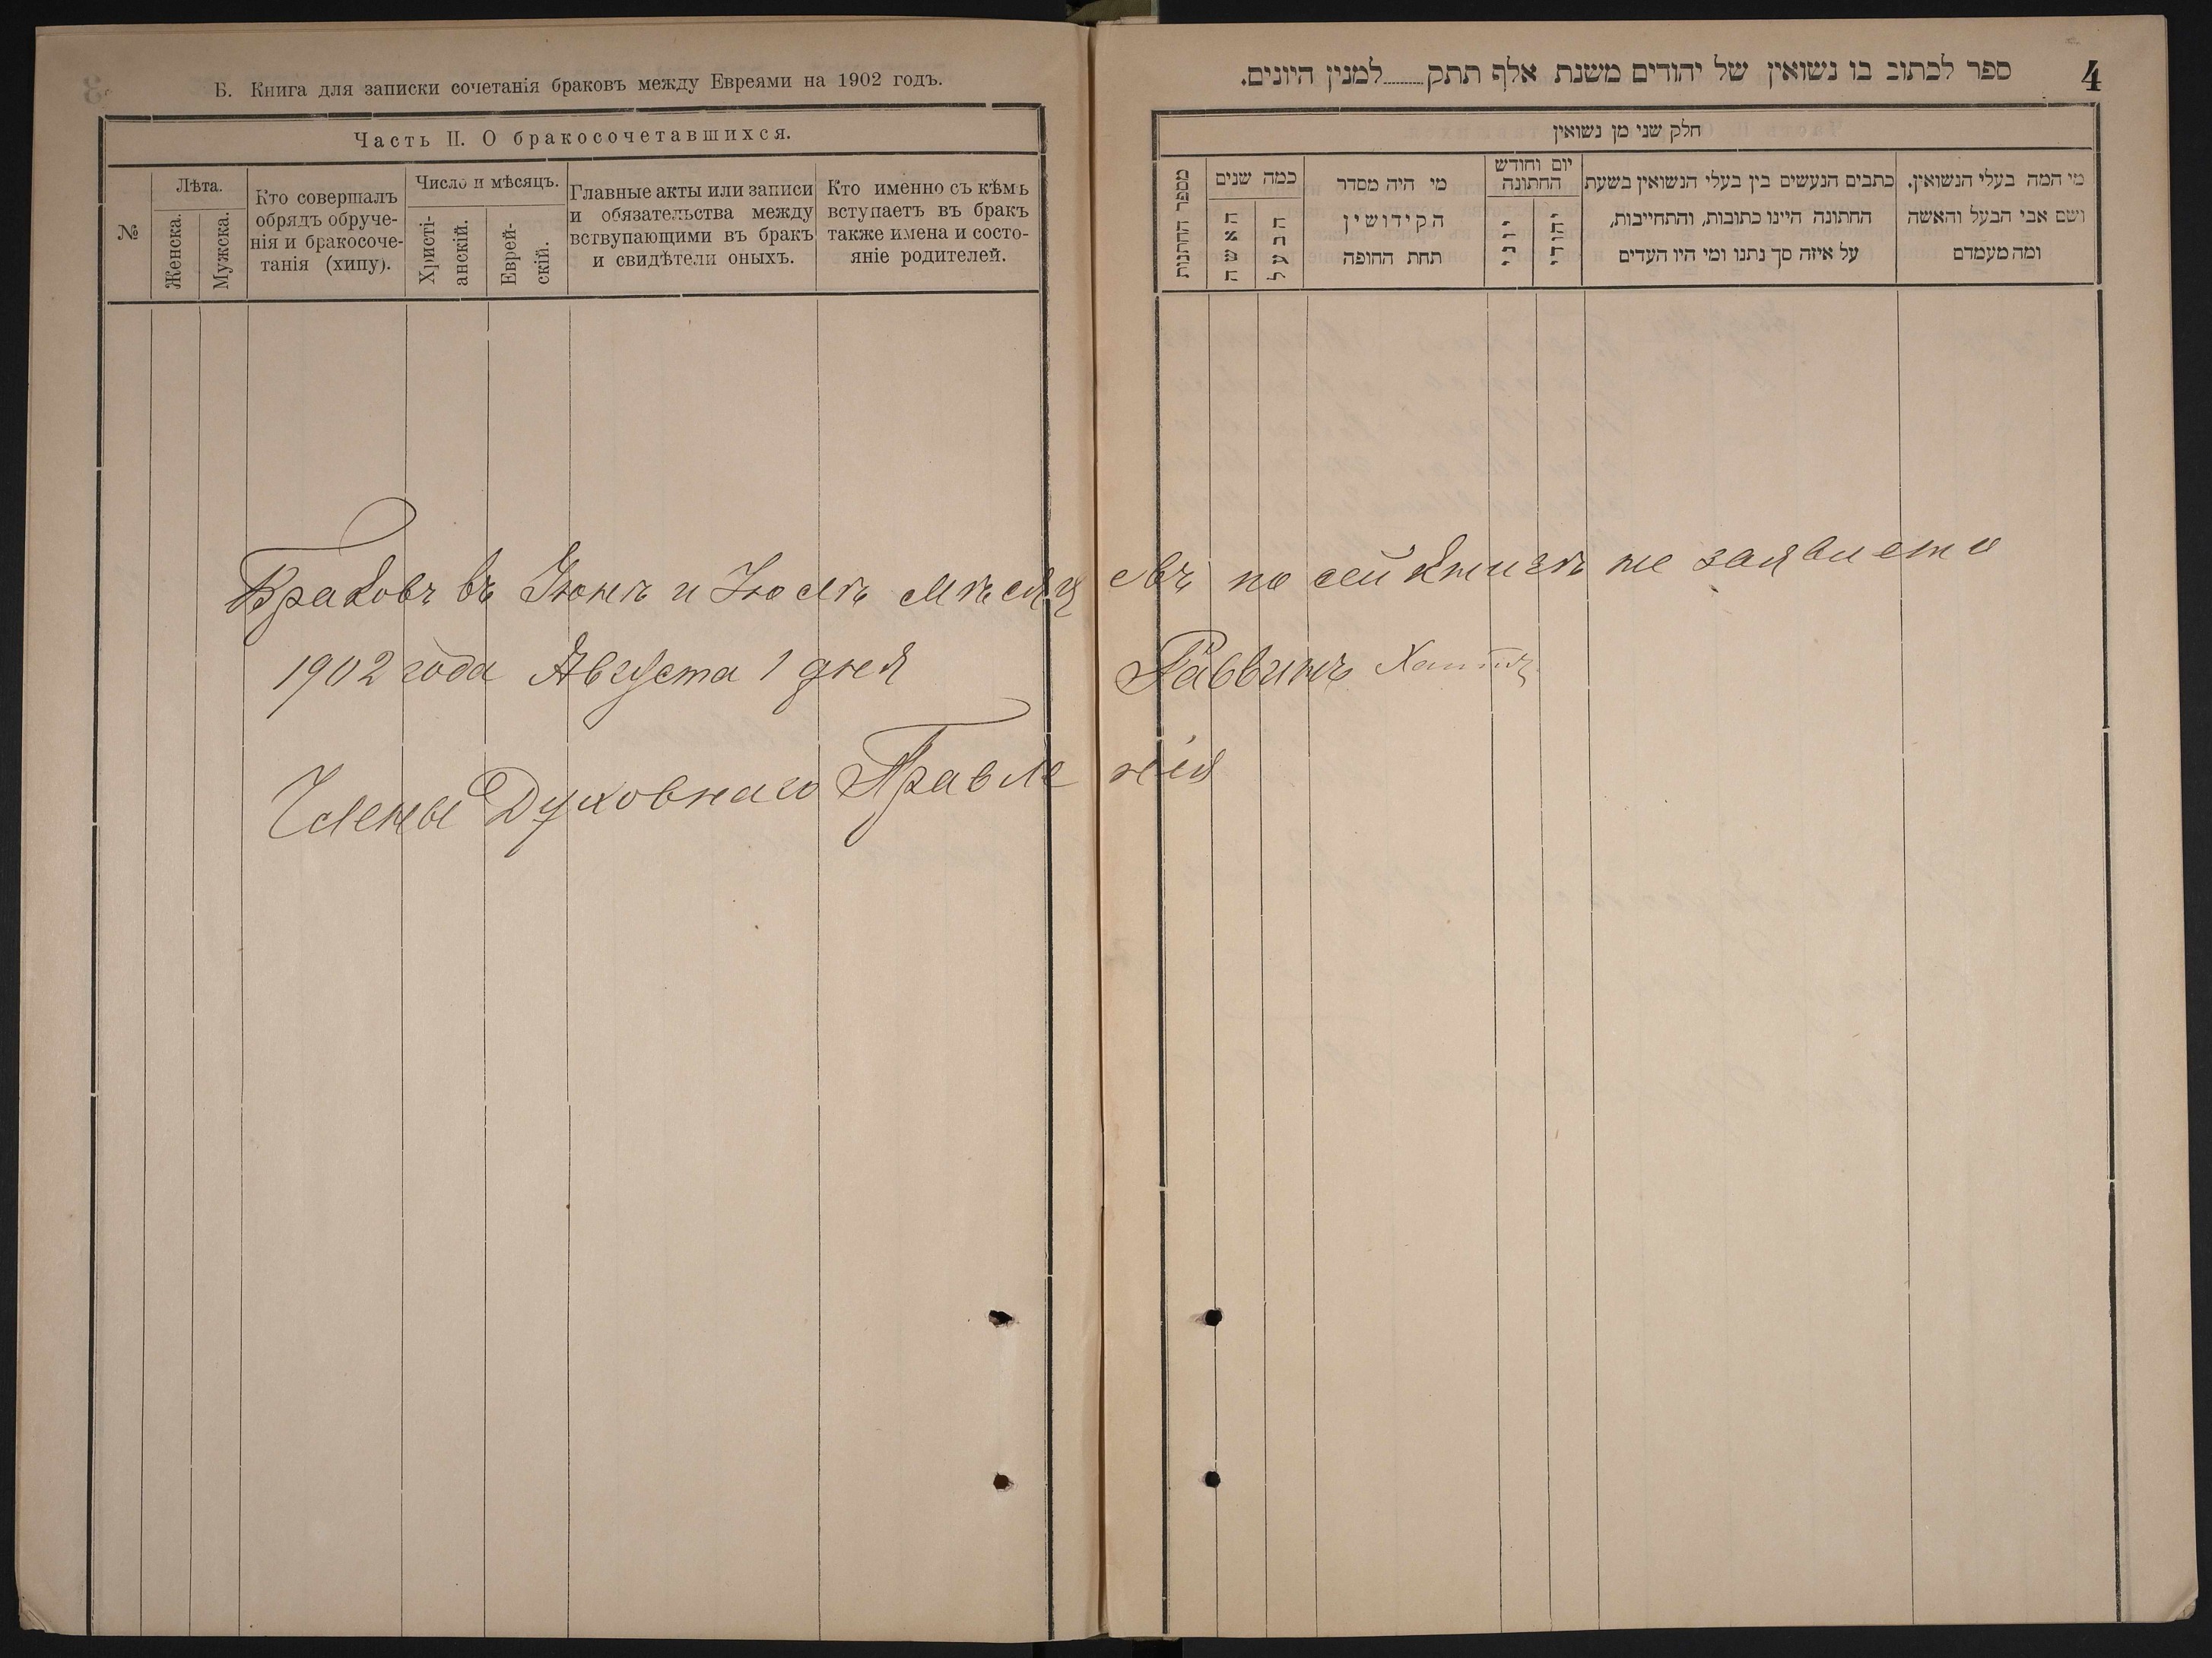 Б. Книга для записки сочетанія браковъ между Евреями на 1902 годъ.
Часть II. О бракосочетавшихся.
№
Лѣта.
Женска.
Мужска.
Кто совершалъ
обрядъ обруче-
нія и бракосоче-
танія (хипу).
Число и мѣсяцъ.
Христі-
анскій.
Еврей-
скій.
Главные акты или записи
и обязательства между
вствупающими въ бракъ
и свидѣтели оныхъ.
Кто именно съ кѣмъ
вступаетъ въ бракъ
также имена и состо-
яніе родителей.
4
ספר לכתוב בו נשואין של יהודים משנת אלף תתק........למנין היונים.
חלק שני מן נשואין
מספר החתונות
כמה שנים
האשה
הבעל
מי היה מסדר
הקידושין
תחת החופה
יום וחודש
החתונה
יוני
יהודי
כתבים הנעשים בין בעלי הנשואין בשעת
החתונה היינו כתובות, והתחייבות,
על איזה סך נתנו ומי היו העדים
מי המה בעלי הנשואין.
ושם אבי הבעל והאשה
ומה מעמדם
Браковъ въ Іюнѣ и Іюлѣ мѣсяцевъ по сей книгѣ не
1902 года Августа 1 дня Раввинъ
Члены Духовнаго Правленія